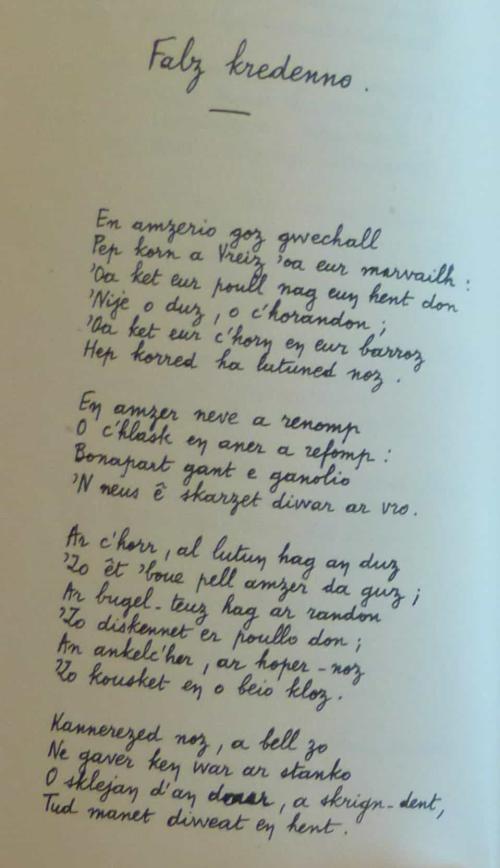 Falz kredenno.
En amzerio goz gwechall
Pep korn a Vreiz 'oa eur marvailh :
'Oa ket eur poull nag euṇ hent don
'Nije o duz, o c'horandon ;
'Oa ket eur c'horṇ eṇ eur barroz
Hep korred ha lutuned noz.
Eṇ amzer neve a renomp
O c'hlask eṇ aner a refomp :
Bonapart gant e ganolio
'N neus ê skarzet divar ar vro.
Ar c'horr, al lutuṇ hag aṇ duz
'Zo êt 'boue pell amzer da guz ;
Ar bugel-teuz hag ar randon
'Zo diskennet er poullo don ;
An ankelc'her, ar hoper-noz
'Zo kousket eṇ o beio kloz.
Kannerezed noz, a bell zo
Ne gaver keṇ war ar stanko
O sklejaṇ d'aṇ douar, a skrign-dent,
Tud manet diweat eṇ hent.